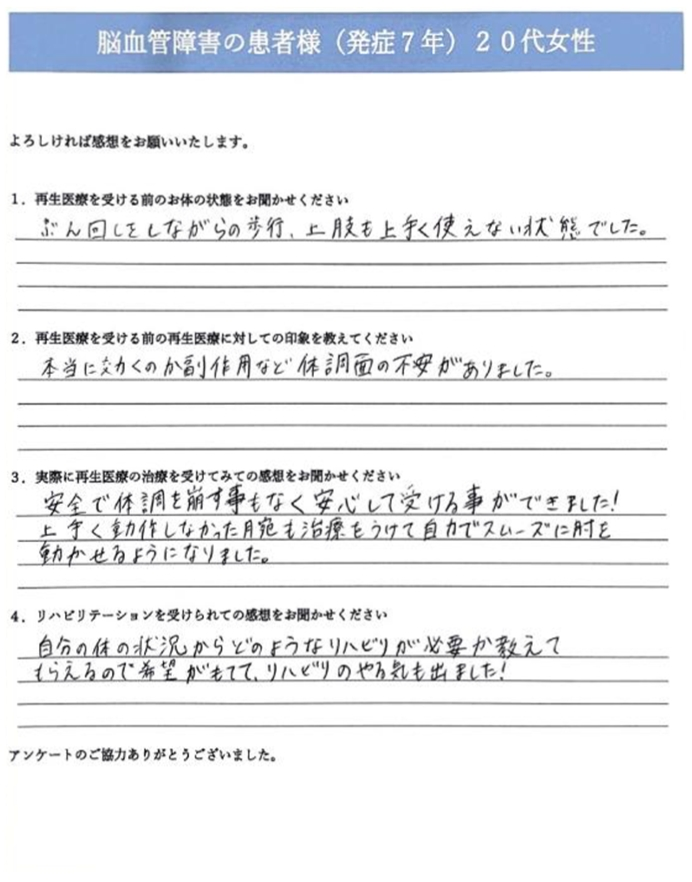 脳血管障害の患者様（発症７年）２０代女性
よろしければ感想をお願いいたします。
１．再生医療を受ける前のお体の状態をお聞かせください
ぶん回しをしながらの歩行、上肢も上手く使えない状態でした。
２．再生医療を受ける前の再生医療に対しての印象を教えてください
本当に効くのか副作用など体調面の不安がありました。
３．実際に再生医療の治療を受けてみての感想をお聞かせください
安全で体調を崩す事もなく安心して受ける事ができました!
上手く動作しなかった腕も治療をうけて自力でスムーズに肘を
動かせるようになりました。
４．リハビリテーションを受けられての感想をお聞かせください
自分の体の状況からどのようなリハビリが必要か教えて
もらえるので希望がもてて、リハビリのやる気も出ました!
アンケートのご協力ありがとうございました。